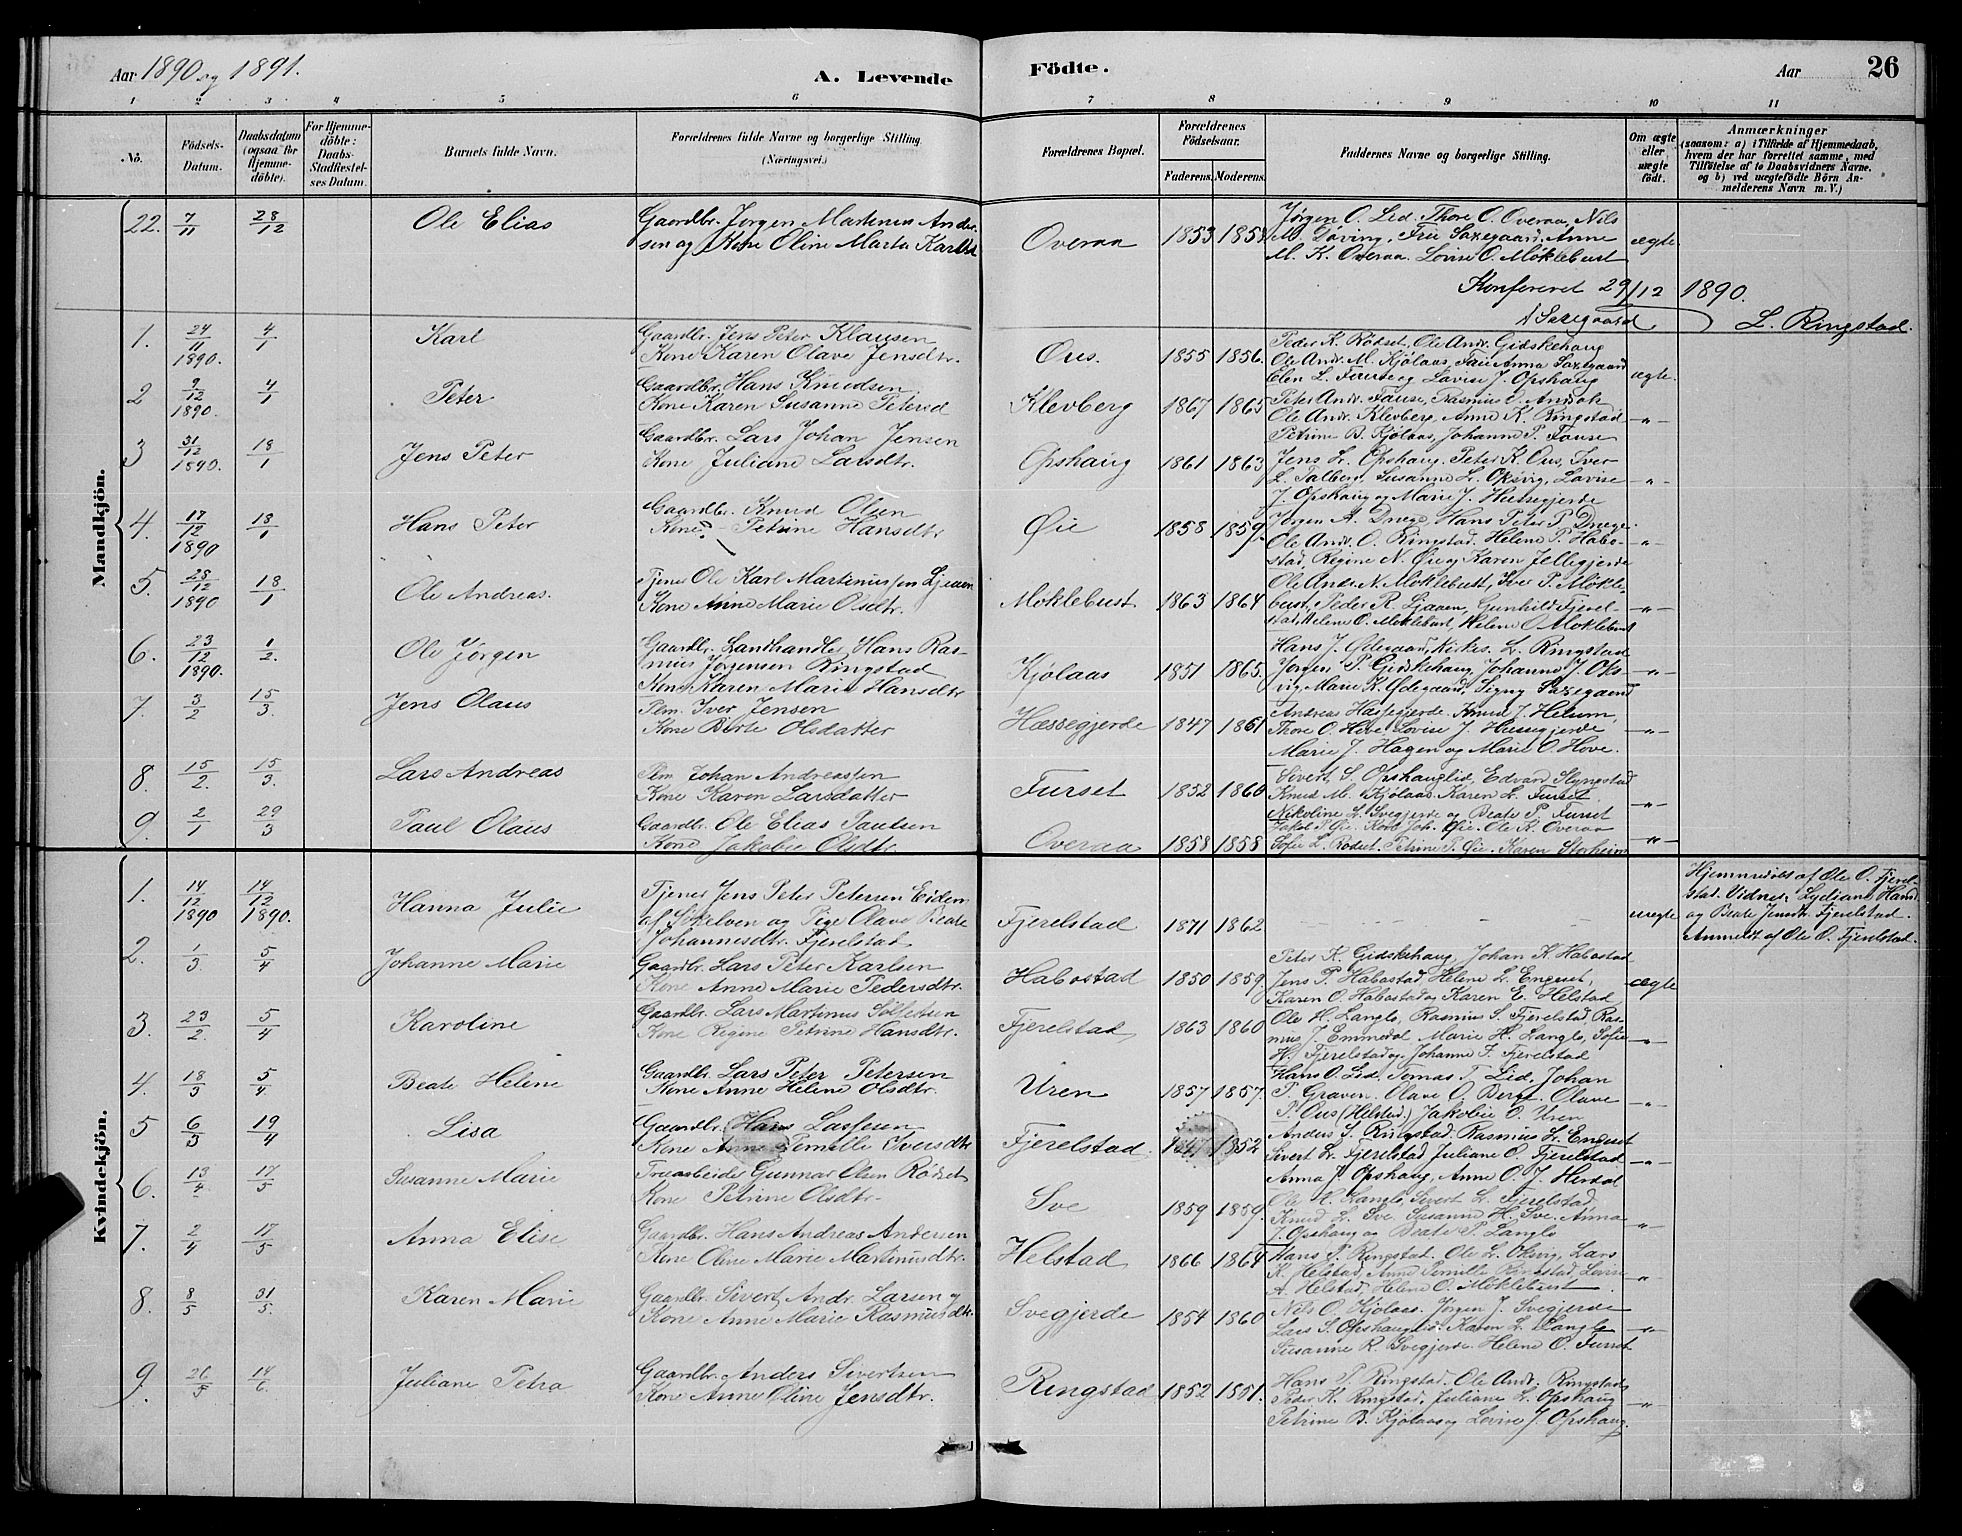 Aar 1890 og 1891.
A. Levende Födte.
Aar 26
1 2 3 4 5 6 7 8 9 10 11
No.
Födsels-Datum.
Daabsdatum (ogsaa for Hjemme-döbte).
For Hjemme-döbte: Daabs-Stadfæstel-ses Datum.
Barnets fulde Navn.
Forældrenes fulde Navne og borgerlige Stilling. (Næringsvei.)
Forældrenes Bopæl.
Forældrenes Födselsaar.
Faderens. Moderens.
Faddernes Navne og borgerlige Stilling.
Om ægte eller uægte födt.
Anmærkninger
(saasom: a) i Tilfælde af Hjemmedaab,
hvem der har forrettet samme, med
Tilföielse af to Daabsvidners Navne,
og b) ved uægtefödte Börn An-
melderens Navn m. V.)
Mandkjön.
22. 7/11 28/12 Ole Elias
Gaardbr. Jørgen Martinus Ander-
sen og Kone Oline Marta Karlsd
Overaa 1853
Jørgen O. Lid. Thore O. Overaa, Nils
M. Døving, Frü Saxegaard, Anne
M. K. Overaa. Lovise O. Möklebust
ægte.
Konfereret 29/12 1890.
Saxegaard L. Ringstad.
1. 24/11 1890. 4/1 Karl
Gaardbr. Jens Peter Klausen
Kone Karen Olave Jensdtr.
Ous. 1855 1856.
Peder K. Rödset, Ole Andr. Gidskehaug
Ole Andr. M. Kjölaas, Frü Anna Saxegaard
Elen L. Fause og Lovise J. Opshaug
ægte.
2 9/12 1890. 4/1 Peter
Gaardbr. Hans Knudsen
Kone Karen Susanne Petersd
Klevberg 1867 1865
Peter Andr. Fause, Rasmus O.
Ole Andr. Klevberg, Anne K. Ringstad
Petrine B. Kjölaas, Johanne P. Fause
-"-
3 31/12 1890. 18/1 Jens Peter
Gaardbr. Lars Johan Jensen
Kone Juliane Larsdtr.
Opshaug 1861 1863
Jens L. Opshaug. Peter K. Ous, Iver
L. Talberg, Susanne L. Oksvig, Lovise
J. Opshaug og Marie J. Hussegjerde
-"-
4. 17/12 1890 18/1 Hans Peter
Gaardbr. Knud Olsen
Kone Petrine Hansdtr
Øie 1858 1859.
Jørgen A. Drege, Hans Peter P. Drege.
Ole Andr. O. Ringstad. Helene P. Habo-
stad, Regine N. Øie og Karen Jelligjerde
-"-
5. 28/12 1890 18/1 Ole Andreas.
Tjener Ole Karl Martinussen Ljøen
Kone Anne Marie Olsdtr.
Moklebust 1863 1864
Ole Andr. N. Moklebust, Iver P. Mökle-
bust, Peder R. Ljøen, Gunhild Fjerel-
stad, Helene O. Moklebust, Helene O. Moklebust
-"-
6. 23/12 1890. 1/2. Ole Jörgen
Gaardbr. Landhandler Hans Ras-
mus Jørgensen Ringstad
Kone Karen Marie Hansdtr
Kjölaas 1851 1865.
Hans J. Ødegaard, Kirkes. L. Ringstad
Jørgen P. Gidskehaug Johanne J. Oks-
vig, Marie K. Ødegaard, Signy Saxegaard
-"-
7. 3/2 15/3. Jens Olaus
Plm. Iver Jensen
Kone Berte Olsdatter
Hæssegjerde 1847 1861
Andreas Hæssegjerde. Knud J. Helsem,
Thore O. Hove, Lovise J. Hussegjerde
Marie J. Hagen og Marie O. Hove.
-"-
8. 15/2. 15/3. Lars Andreas
Plm. Johan Andreassen
Kone Karen Larsdatter
Furset 1852 1860
Sivert S. Opshauglid, Edvard Slyngstad
Knud M. Kjölaas. Karen L. Furset
Nikoline L. Svegjerde og Beate P. Furset
-"-
9. 2/1 29/3 Paul Olaus
Gaardbr. Ole Elias Paulsen
Kone Jakobie Olsdtr.
Overaa 1858 1858
Jakob P. Øie. Karl Joh. Øie. Ole K. Overaa
Sofie L. Rödset. Petrine P. Øie. Karen Storheim
-"-
Kvindekjön.
1. 14/12 1890 14/12 1890. Hanna Julie
Tjener Jens Peter Petersen Eidem
af Sökelven og Pige Olave Beate
Johannesdtr. Fjerelstad
Fjerelstad 1871 1862
uægte
Hjemmedöbt af Ole O. Fjerel-
stad. Vidner: Lydiane Hansd
og Beate Jensdtr. Fjerelstad.
Anmeldt af Ole O. Fjerelstad.
2. 1/3. 5/4 Johanne Marie
Gaardbr. Lars Peter Karlsen
Kone Anne Marie Pedersdtr.
Habostad 1850 1859.
Peter K. Gidskehaug, Johan K. Habostad
Jens P. Habostad, Helene L. Engeset,
Karen O. Habostad og Karen E. Helstad
ægte
3. 23/2. 5/4 Karoline
Gaardbr. Lars Martinus Solfestsen
Kone Regine Petrine Hansdtr.
Fjerelstad, 1863 1860
Ole H. Langlo, Rasmus S. Fjerelstad, Ras-
mus J. Emmedal Marie H. Langlo, Sofie
H. Fjerelstad og Johanne S. Fjerelstad
-"-
4. 18/3 5/4. Beate Helene
Gaardbr. Lars Peter Petersen
Kone Anne Helene Olsdtr.
Uren 1857 1857.
Hans O. Lid. Tomas T. Lid. Johan
P. Graven. Olave O. Berge. Olave
P. Ous (Helstad) Jakobie O. Uren
-"-
5 6/5 19/4 Lisa
Gaardbr. Hans Lassesen
Kone Anne Pernille Iversdtr
Fjerelstad. 1852
Anders S. Ringstad. Rasmus L. Engeset
Sivert L. Fjerelstad Juliane O. Fjerelstad
Anna J. Opshaug, Anne O. J. Herdal
-"-
6. 13/4 17/5 Susanne Marie
Træarbeider Gunnar Olsen Rödset
Kone Petrine Olsdtr.
Sve 1859 1859.
Ole H. Langlo, Sivert L. Fjerelstad
Knud L. Sve. Susanne H. Sve. Anna
J. Opshaug og Beate P. Langlo
-"-
7. 2/4 17/5 Anna Elise
Gaardbr. Hans Andreas Andersen
Kone Oline Marie Martinusdtr.
Helstad 1866 1864
Hans P. Ringstad. Ole L. Oksvig, Lars
K. Helstad, Anne Pernille Ringstad Lovise
A. Helstad, Helene O. Möklebust.
-"-
8. 8/5 31/5. Karen Marie
Gaardbr. Sivert Andr. Larsen og
Kone Anne Marie Rasmusdtr.
Svegjerde 1854 1860
Nils O. Kjölaas. Jørgen J. Svegjerde
Lars S. Opshauglid. Karen L. Langlo
Susanne R. Svegjerde. Helene O. Furset
-"-
9. 26/5 14/6. Juliane Petra
Gaardbr. Anders Sivertsen
Kone Anne Oline Jensdtr.
Ringstad 1852 1851.
Hans P. Ringstad. Ole Andr. Ringstad
Peder K. Ringstad, Juliane L. Opshaug
Petrine B. Kjölaas og Lovise J. Opshaug.
-"-